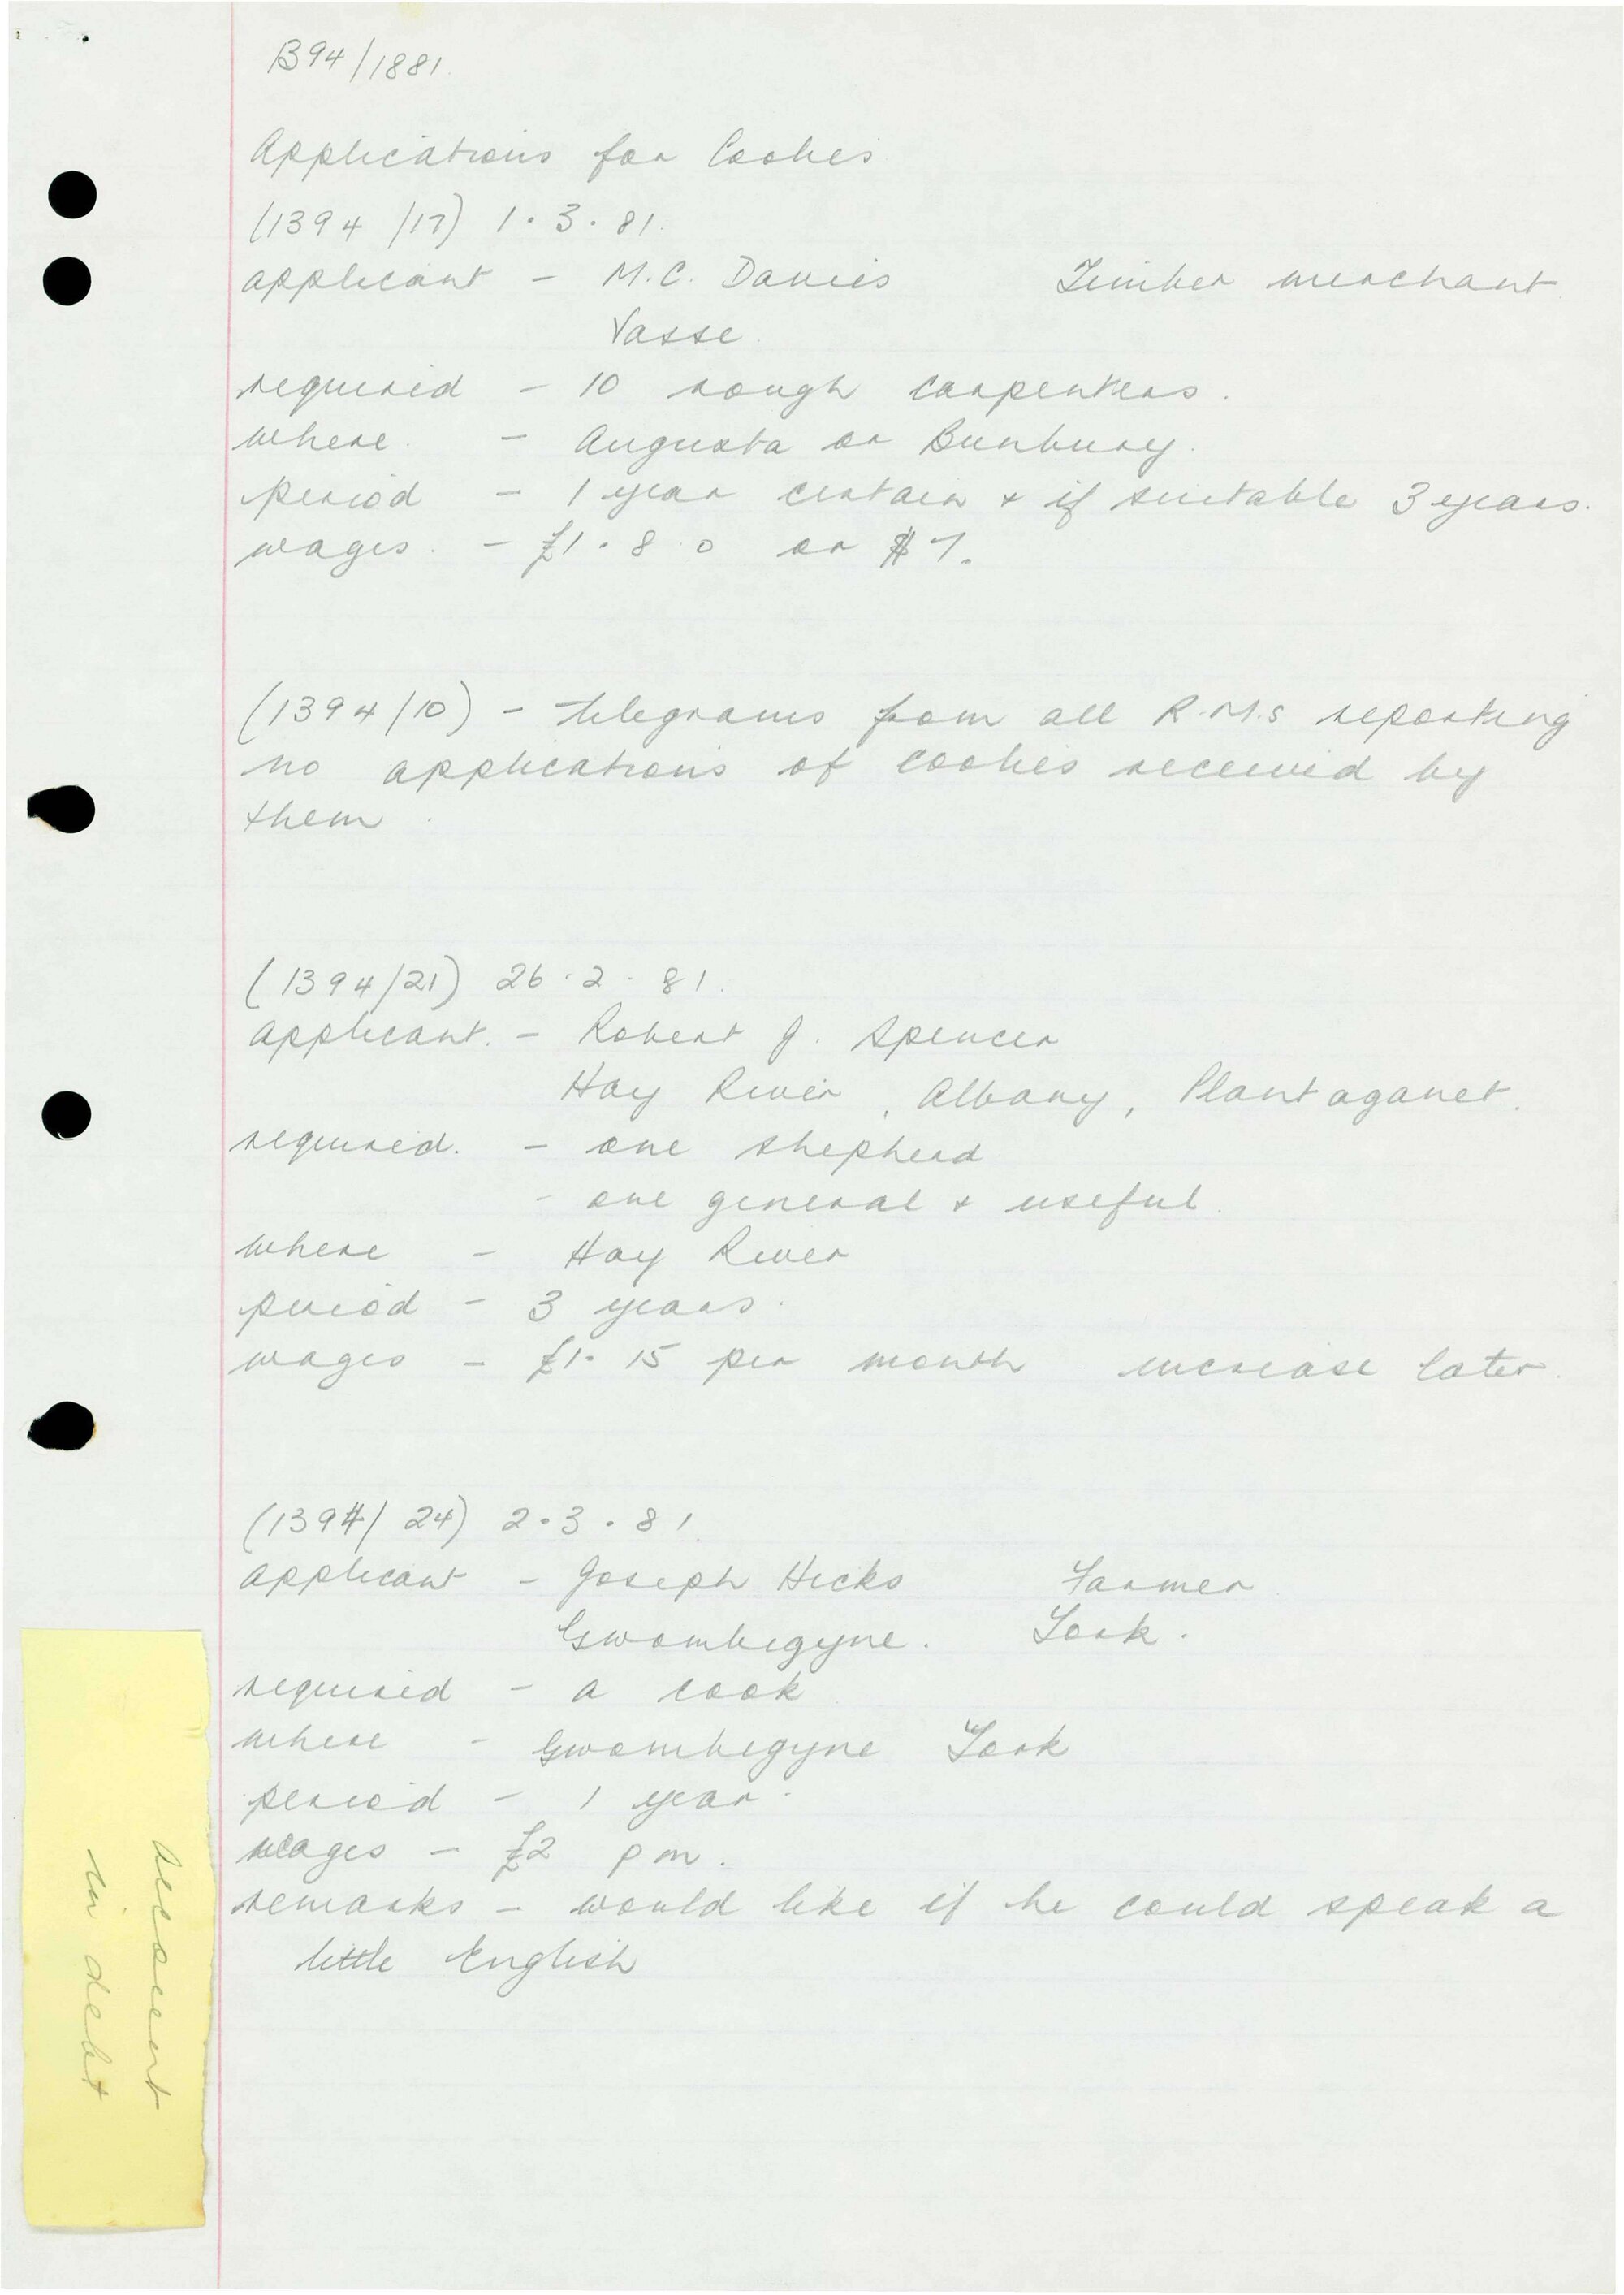 B94/1881.
Applications for Coolies
(1394/17) 1.3.81.
applicant - M.C. Davies Timber merchant
Vasse.
required - 10 rough carpenters.
where. - Augusta or Bunbury.
period - 1 year certain & if suitable 3 years.
wages. - £1.8.0 or $7.
(1394/10) - telegrams from all R.M.s reporting
no applications of coolies received by
them.
(1394/21) 26.2.81.
applicant. - Robert J. Spencer
Hay River, Albany, Plantaganet.
required. - one shepherd
- one general & useful.
where - Hay River
period - 3 years.
wages - £1.15 per month increase later.
(1394/24) 2.3.81.
applicant - Joseph Hicks Farmer
Gwambygyne. York.
required - a cook
where - Gwambygyne York
period - 1 year.
wages - £2 pm.
remarks - would like if he could speak a
little English
in debt